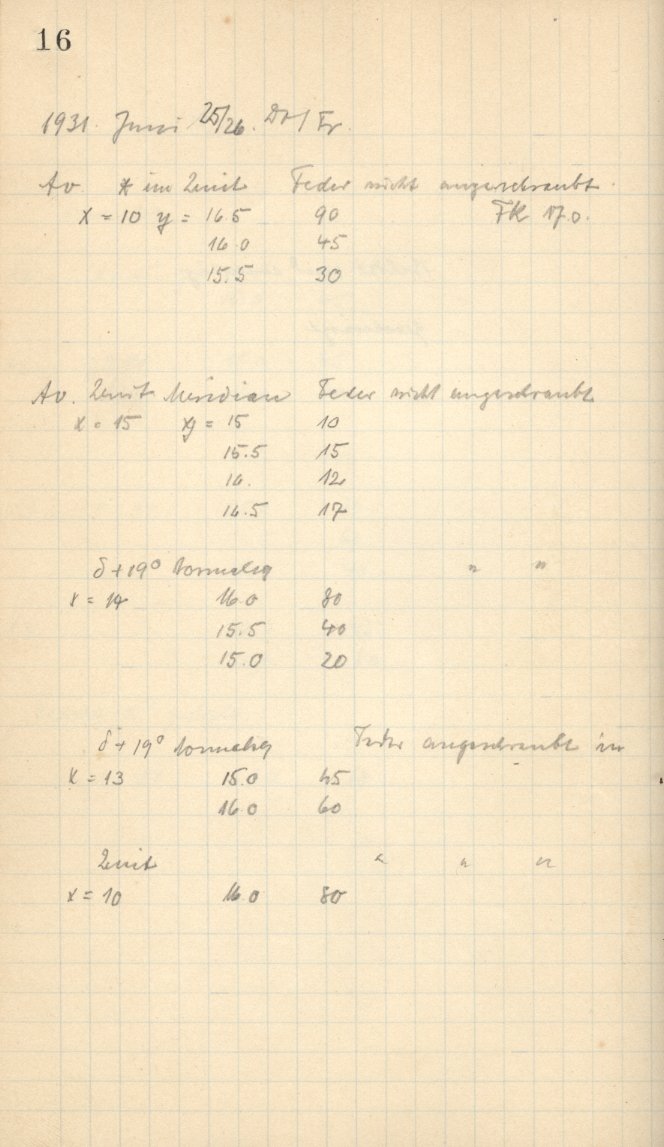 16
1931. Juni 25/26. Do/Fr.
Av. * im Zenit Feder nicht angeschraubt.
x = 10 y = 16.5 90 FK 17.0.
16.0 45
15.5 30
Av. Zenit Meridian Feder nicht angeschraubt
x = 15 y = 15 10
15.5 15
16. 12
16.5 17
δ + 19° " "
x = 14 16.0 80
15.5 40
15.0 20
δ + 19° Feder angeschraubt in
x = 13 15.0 45
16.0 60
Zenit " " "
x = 10 16.0 80